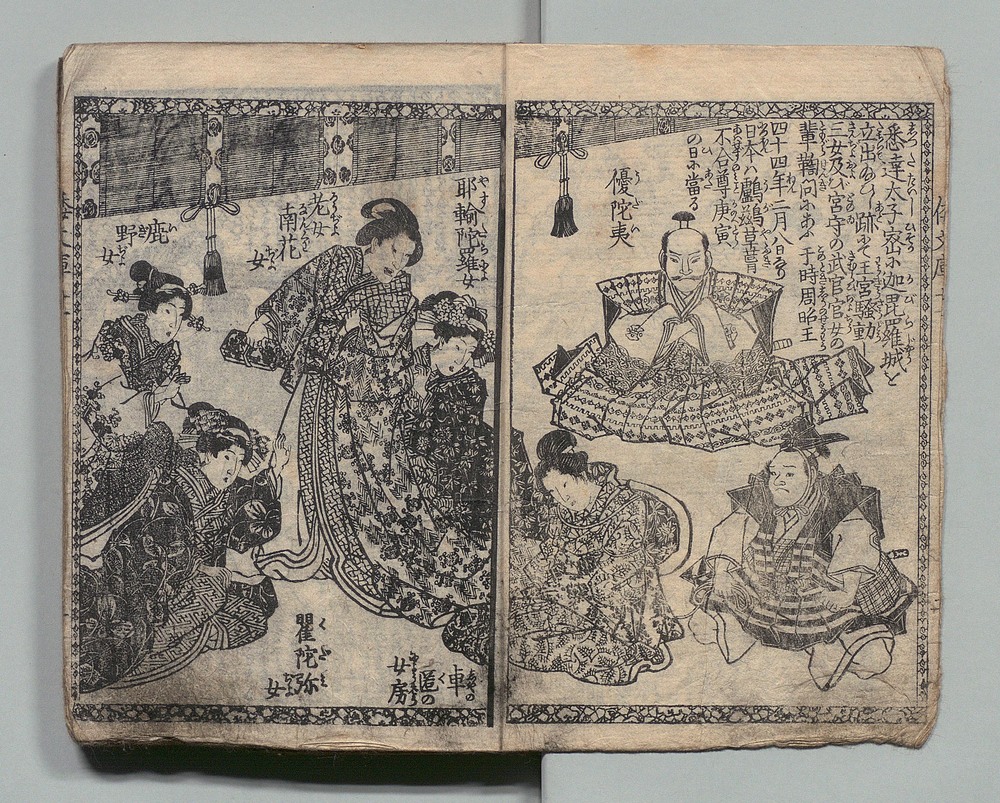 悉達太子密に迦毘羅城を
立出給ひし跡にて王宮騒動
三女及び宮守の武官官女の
輩鞫問にあふ于時周昭王
四十四年二月八日
日本ハ鸕鶿草葺
不合尊庚寅
の日に當る
優陀夷
耶輸陀羅女
老女
南花女
鹿野女
車匿の
女房
瞿陀弥女